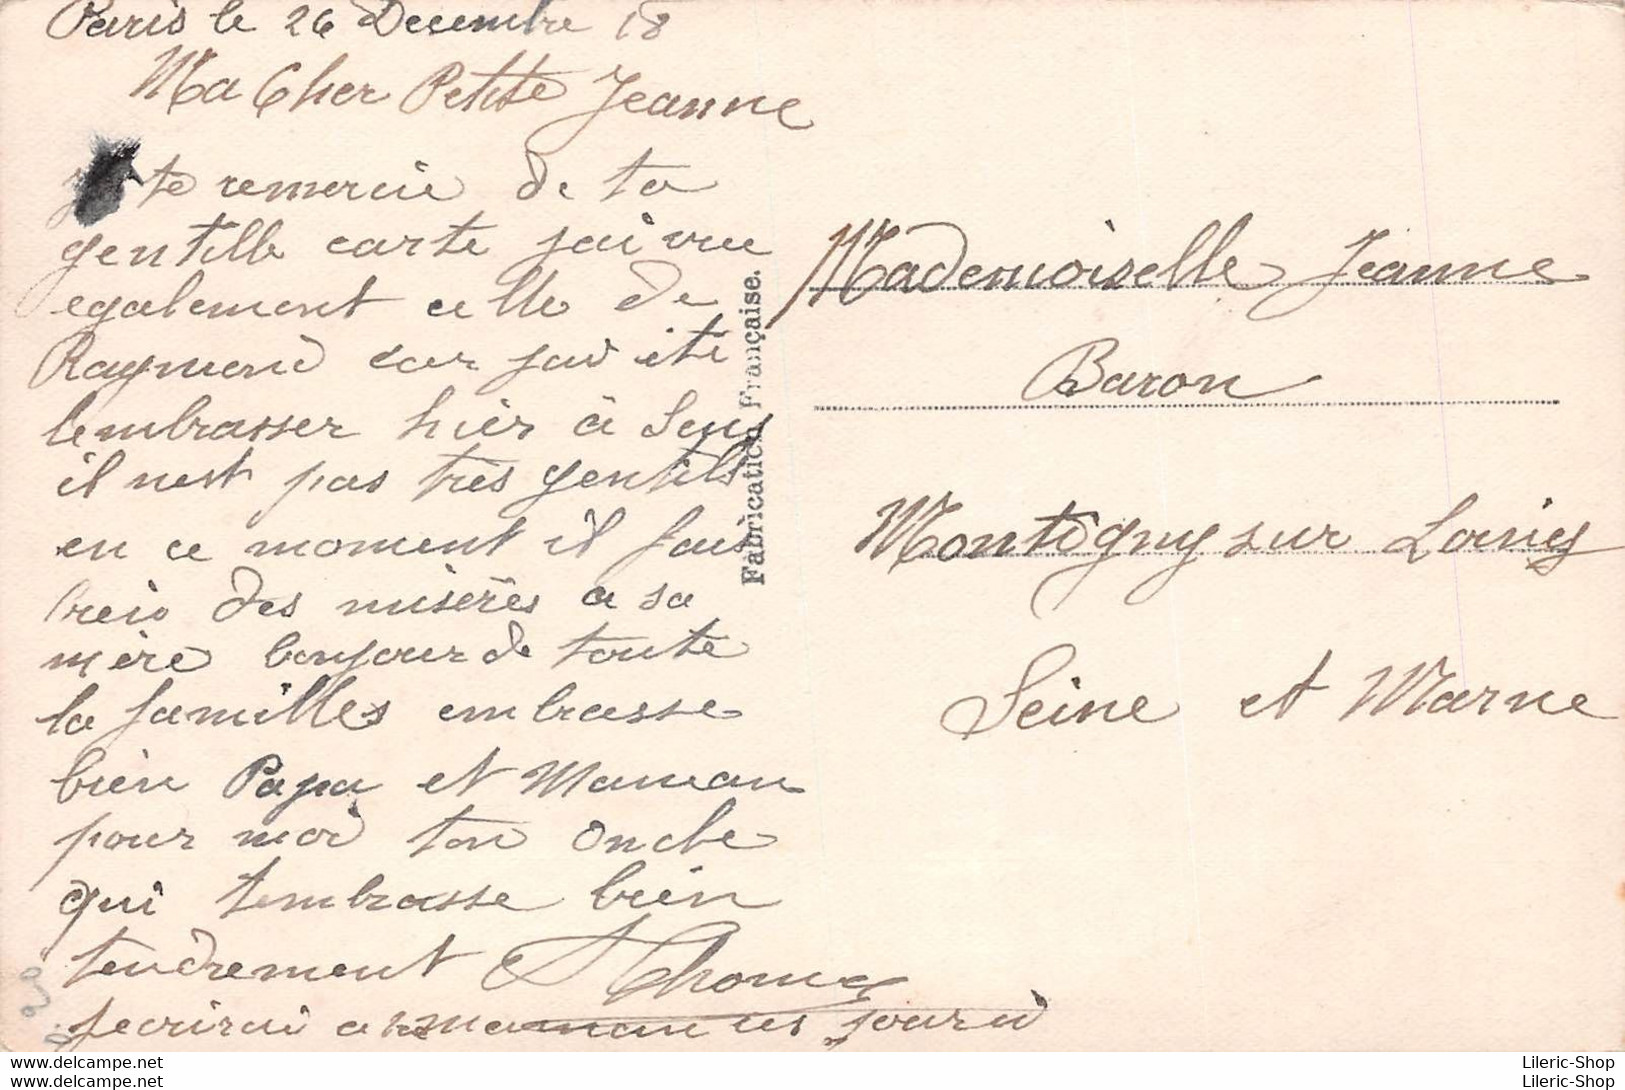 Paris le 26 Decembre 18
Ma Cher Petite Jeanne
te remercie de ta
gentille carte jai vue
egalement celle de
Raymond car jai été
lembrasser hier à Sens
il nest pas très gentils
en ce moment il fait
des misères a sa
mère bonjour de toute
la familles embrasse
bien Papa et Maman
pour moi ton oncle
qui tembrasse bien
tendrement Thomas
jecrirai a maman ces jours ci
Fabrication Française.
Mademoiselle Jeanne
Baron
Montigny sur Loing
Seine et Marne
Lileric-Shop
Lileric-Shop
Lileric-Shop
Lileric-Shop